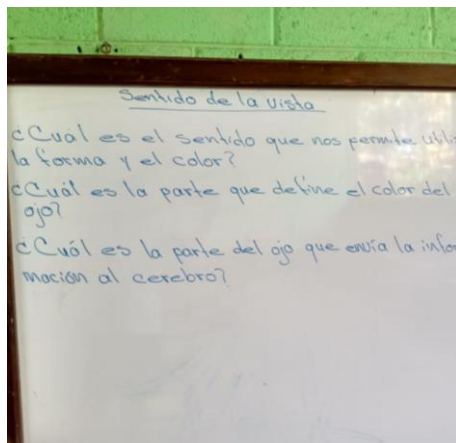 Sentido de la vista
¿Cual es el sentido que nos permite utili
la forma y el color?
¿Cuál es la parte que define el color del
ojo?
¿Cuál es la parte del ojo que envía la infor
mación al cerebro?